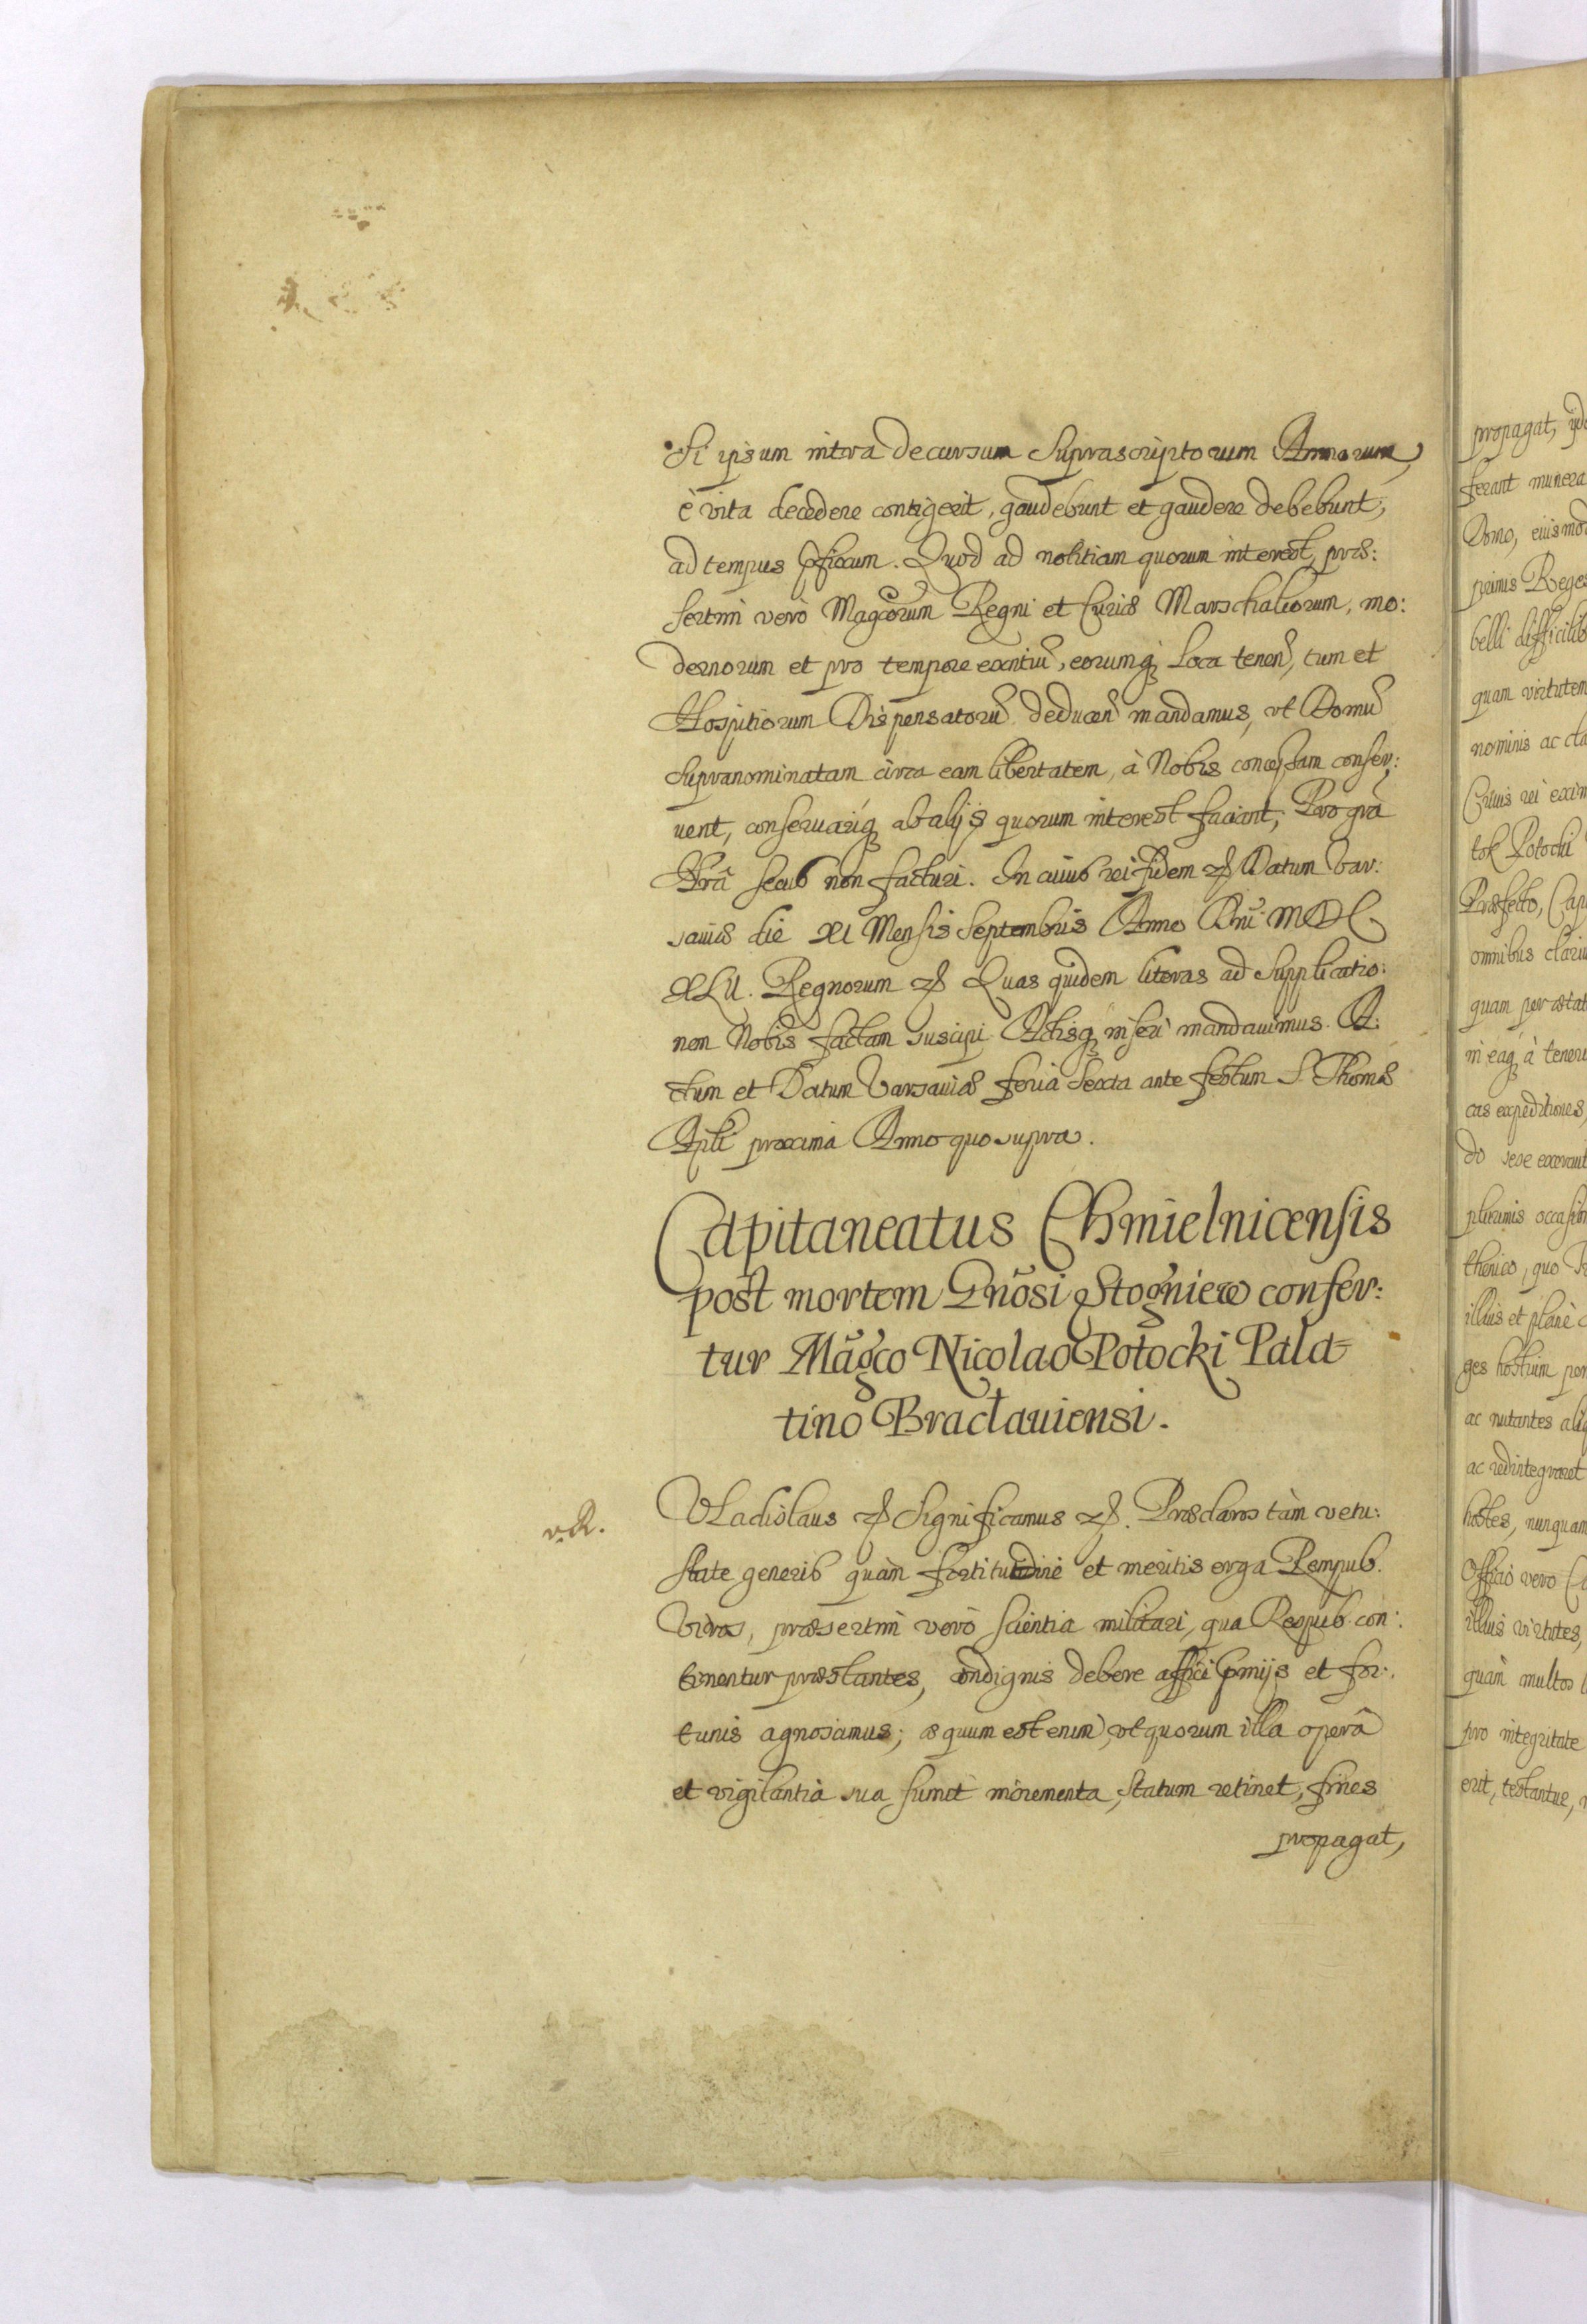 Si ipsum intra decursum suprascriptorum Annorum
è vita decedere contigerit, gaudebunt et gaudere debebunt,
ad tempus pfixum. Quod ad notitiam quorum interest, præ:
sertim verò Magcorum Regni et Curiæ Marschalcorum, mo:
dernorum et pro tempore exntiũ, eorumq́ Loca tenen, tum et
Hospitiorum Dispensatorũ deducen mandamus, vt Domũ
supranominatam circa eam libertatem, à Nobis concessam conser:
uent, conseruariq́ ab alijs quorum interest faciant, Pro grã
Nrã secus non facturi. In cuius rei fidem &c Datum Var:
sauiæ die XI Mensis Septembris Anno Dni MDC
XLII. Regnorum &c Quas quidem literas ad Supplicatio:
nem Nobis factam suscipi Actisq́ inseri mandauimus. A:
ctum et Datum Varsauiæ feria Sexta ante festum S. Thomæ
Apli proxima Anno quo supra.
Capitaneatus Chmielnicensis
post mortem Gnõsi Stogniew confer:
tur Mãgco Nicolao Potocki Pala=
tino Bractauiensi.
VLadislaus &c Significamus &c. Præclaros tàm vetu:
state generis quàm fortitudine et meritis erga Rempub.
viros, præsertim verò scientia militari, qua Respub. con:
tinentur præstantes, condignis debere affici pmijs et for:
tunis agnoscimus; æquum est enim, vt quorum illa operâ
et vigilantia sua sumit incrementa, statum retinet, fines
propagat,
propagat,
ferant munera
Domo, eiusmod
primis Reges
belli difficilib
quam virtutem
nominis ac cla
Cuius rei exim
tok Potocki
Præfecto, Cap
omnibus clariu
quam per ætat
in eaq́ à tener
cas expeditiones,
do sese exerant
plurimis occasion
thenico, quo
illius et planè
ges hostium
ac nutantes aliq
ac redintegraret
hostes, nunquam
Officio vero
illius virtutes,
quàm multos
pro integritate
erit, testantur,